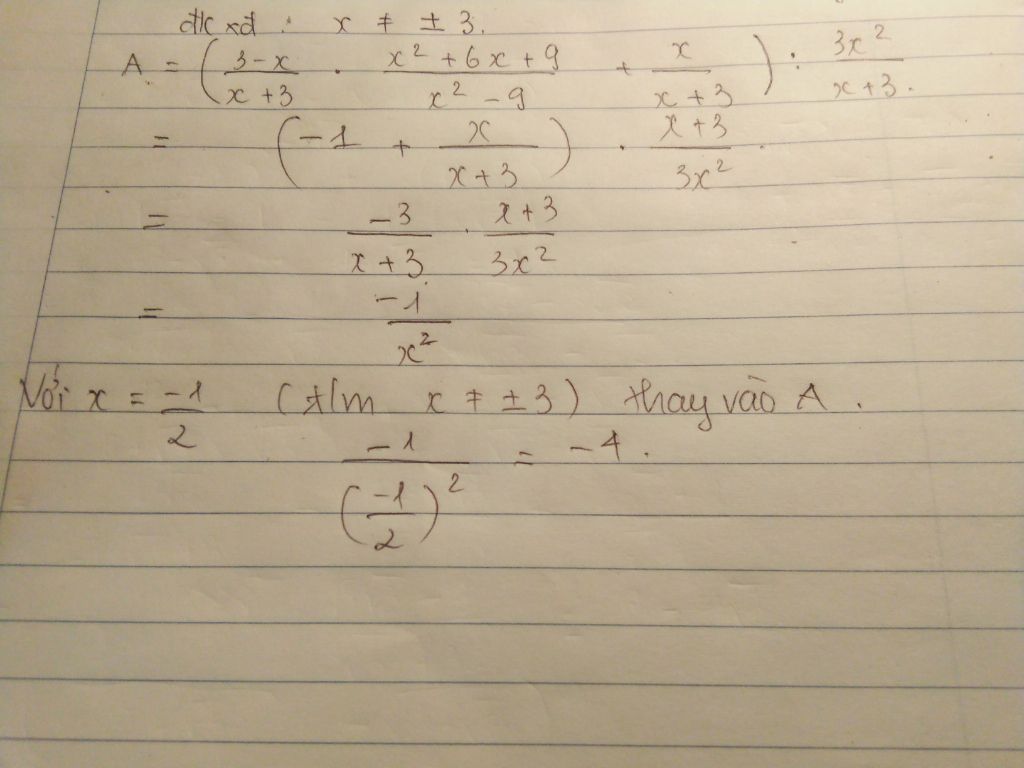 đk xđ : x ≠ ± 3.
A = ( \frac{3-x}{x+3} . \frac{x^2+6x+9}{x^2-9} + \frac{x}{x+3} ) : \frac{3x^2}{x+3}.
= ( -1 + \frac{x}{x+3} ) . \frac{x+3}{3x^2}.
= \frac{-3}{x+3} . \frac{x+3}{3x^2}
= \frac{-1}{x^2}
Với x = \frac{-1}{2} (t/m x ≠ ± 3) thay vào A.
\frac{-1}{(\frac{-1}{2})^2} = -4.